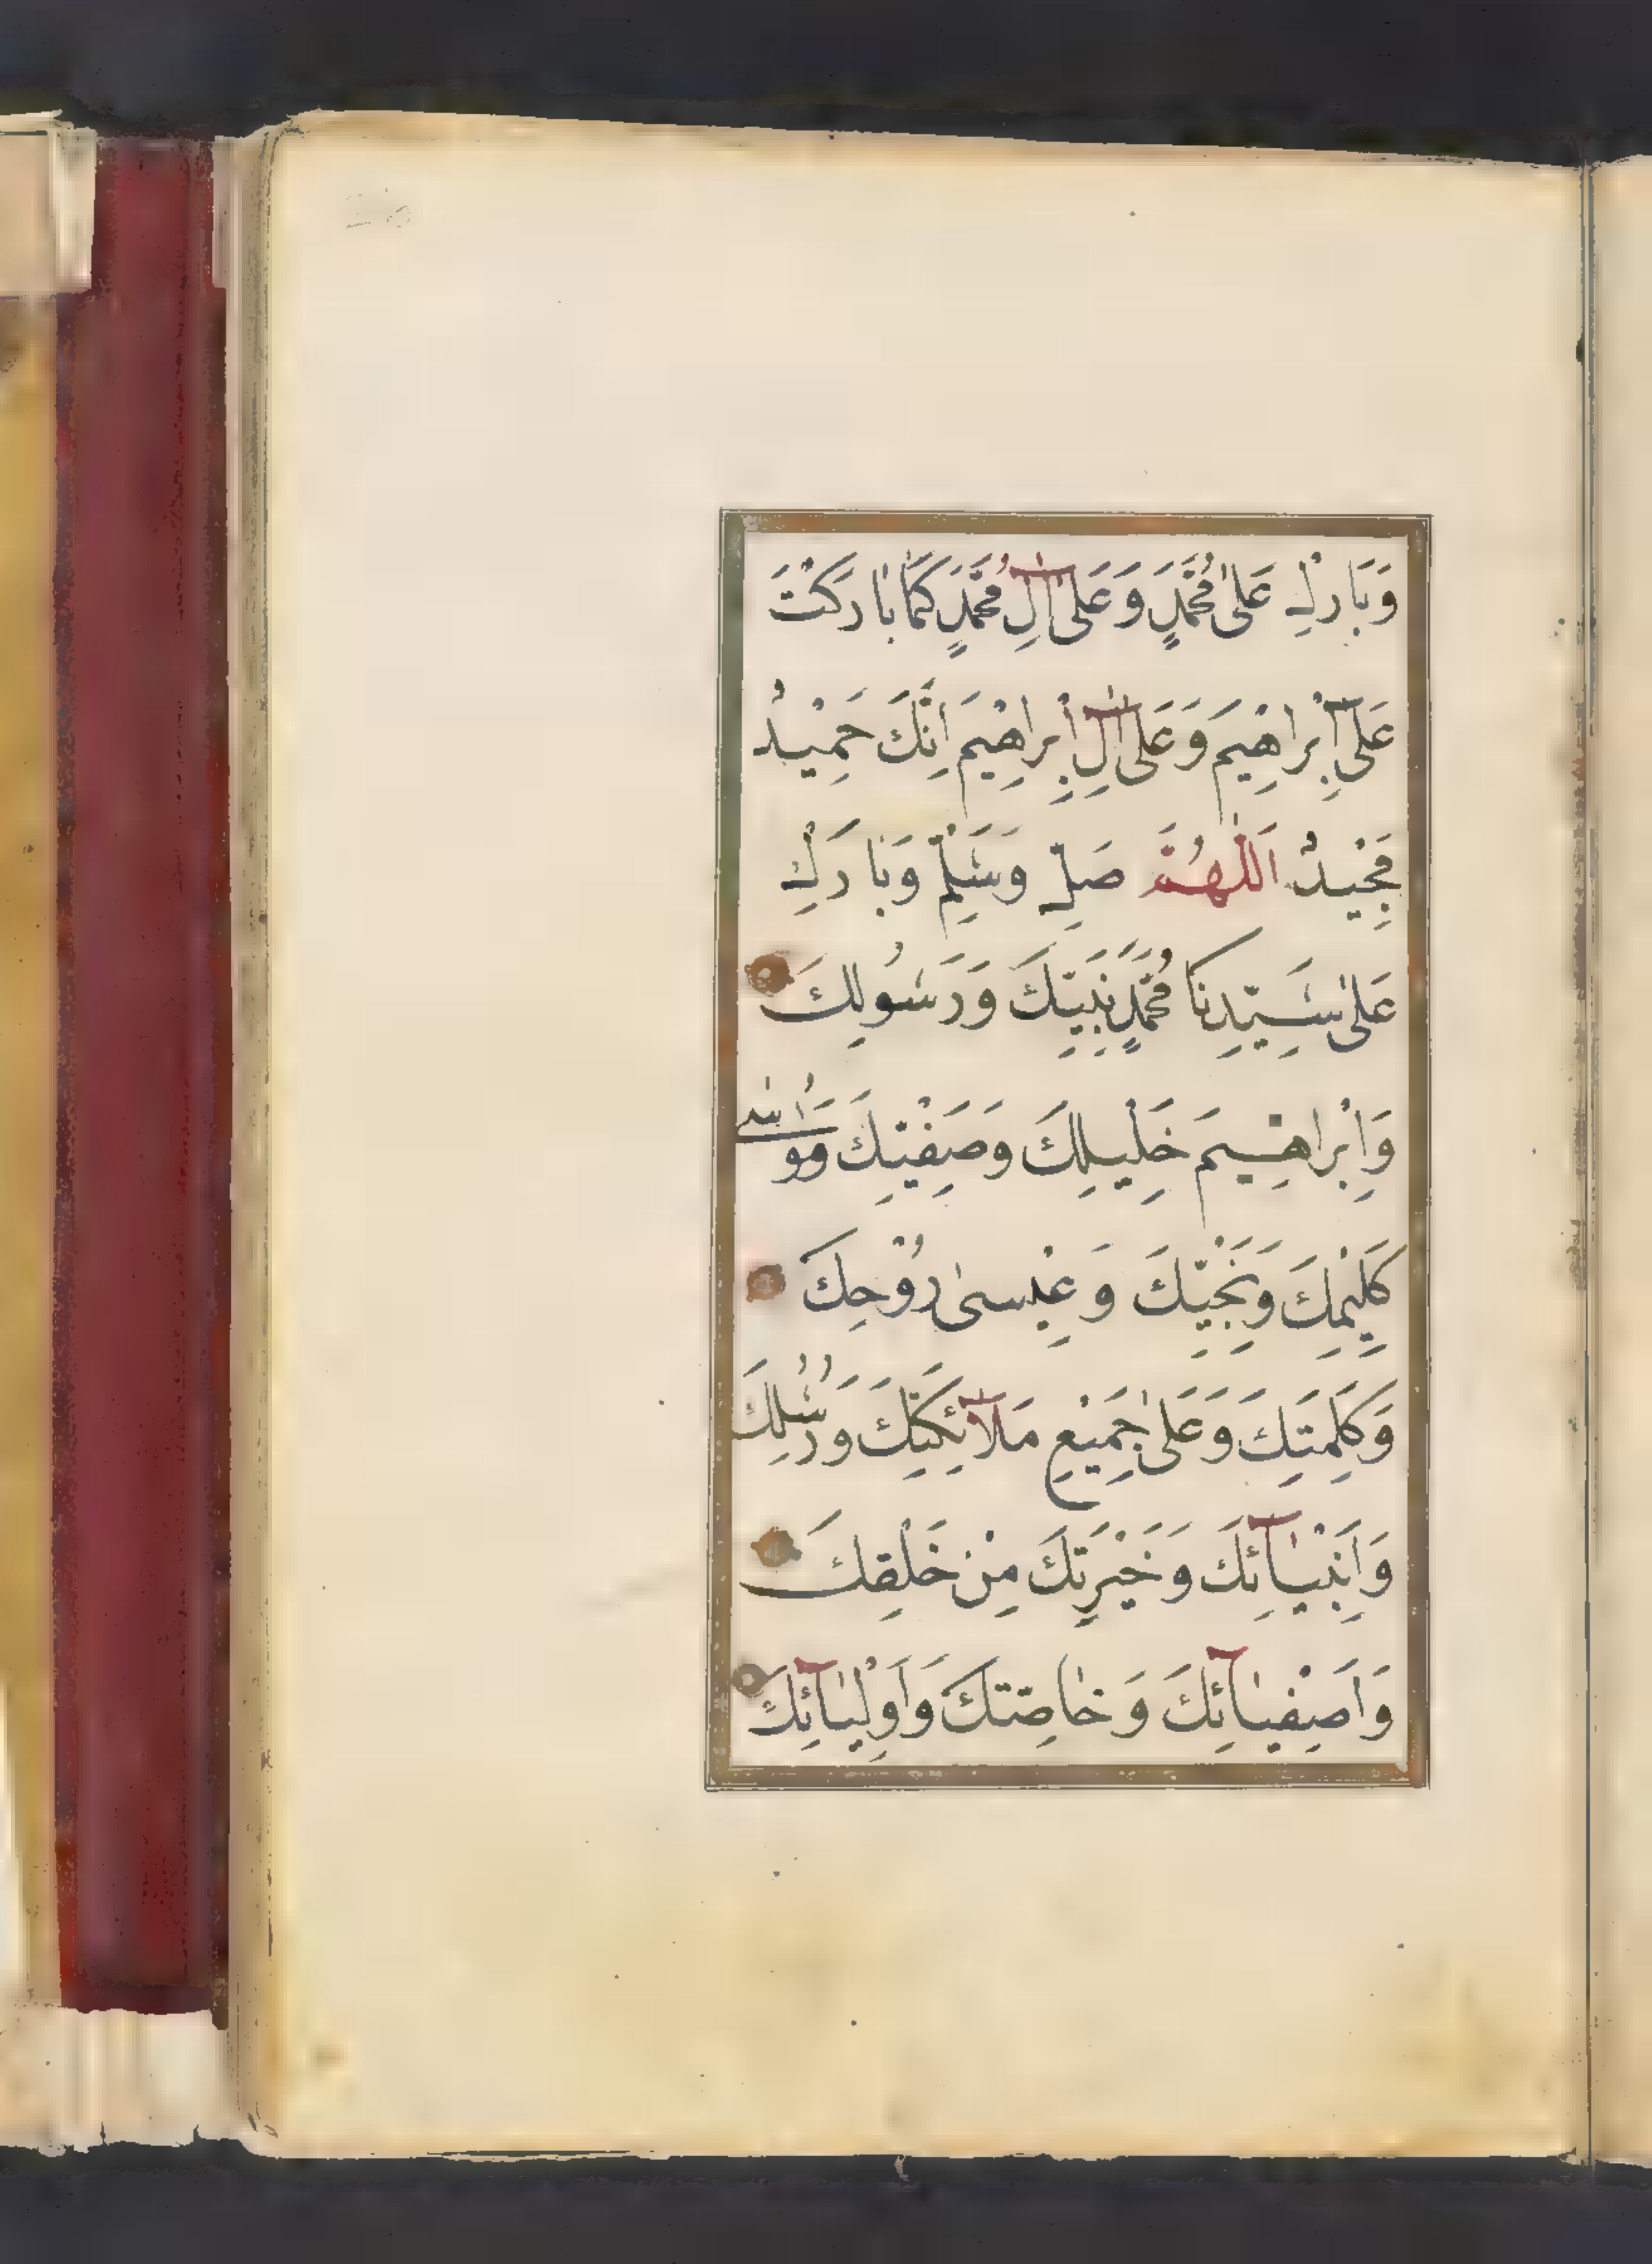 وَبَارِكْ عَلٰى مُحَمَّدٍ وَعَلٰى اٰلِ مُحَمَّدٍ كَمَا بَارَكْتَ
عَلٰى اِبْرَاهِيمَ وَعَلٰى اٰلِ اِبْرَاهِيمَ اِنَّكَ حَمِيْدٌ
مَجِيْدٌ اَللّٰهُمَّ صَلِّ وَسَلِّمْ وَبَارِكْ
عَلٰى سَيِّدِنَا مُحَمَّدٍ نَبِيِّكَ وَرَسُولِكَ
وَاِبْرَاهِيمَ خَلِيْلِكَ وَصَفِيِّكَ وَمُوسٰى
كَلِيْمِكَ وَنَجِيِّكَ وَعِيْسٰى رُوْحِكَ
وَكَلِمَتِكَ وَعَلٰى جَمِيْعِ مَلَآئِكَتِكَ وَرُسُلِكَ
وَاَنْبِيَآئِكَ وَخَيْرَتِكَ مِنْ خَلْقِكَ
وَاَصْفِيَآئِكَ وَخَاصَّتِكَ وَاَوْلِيَآئِكَ